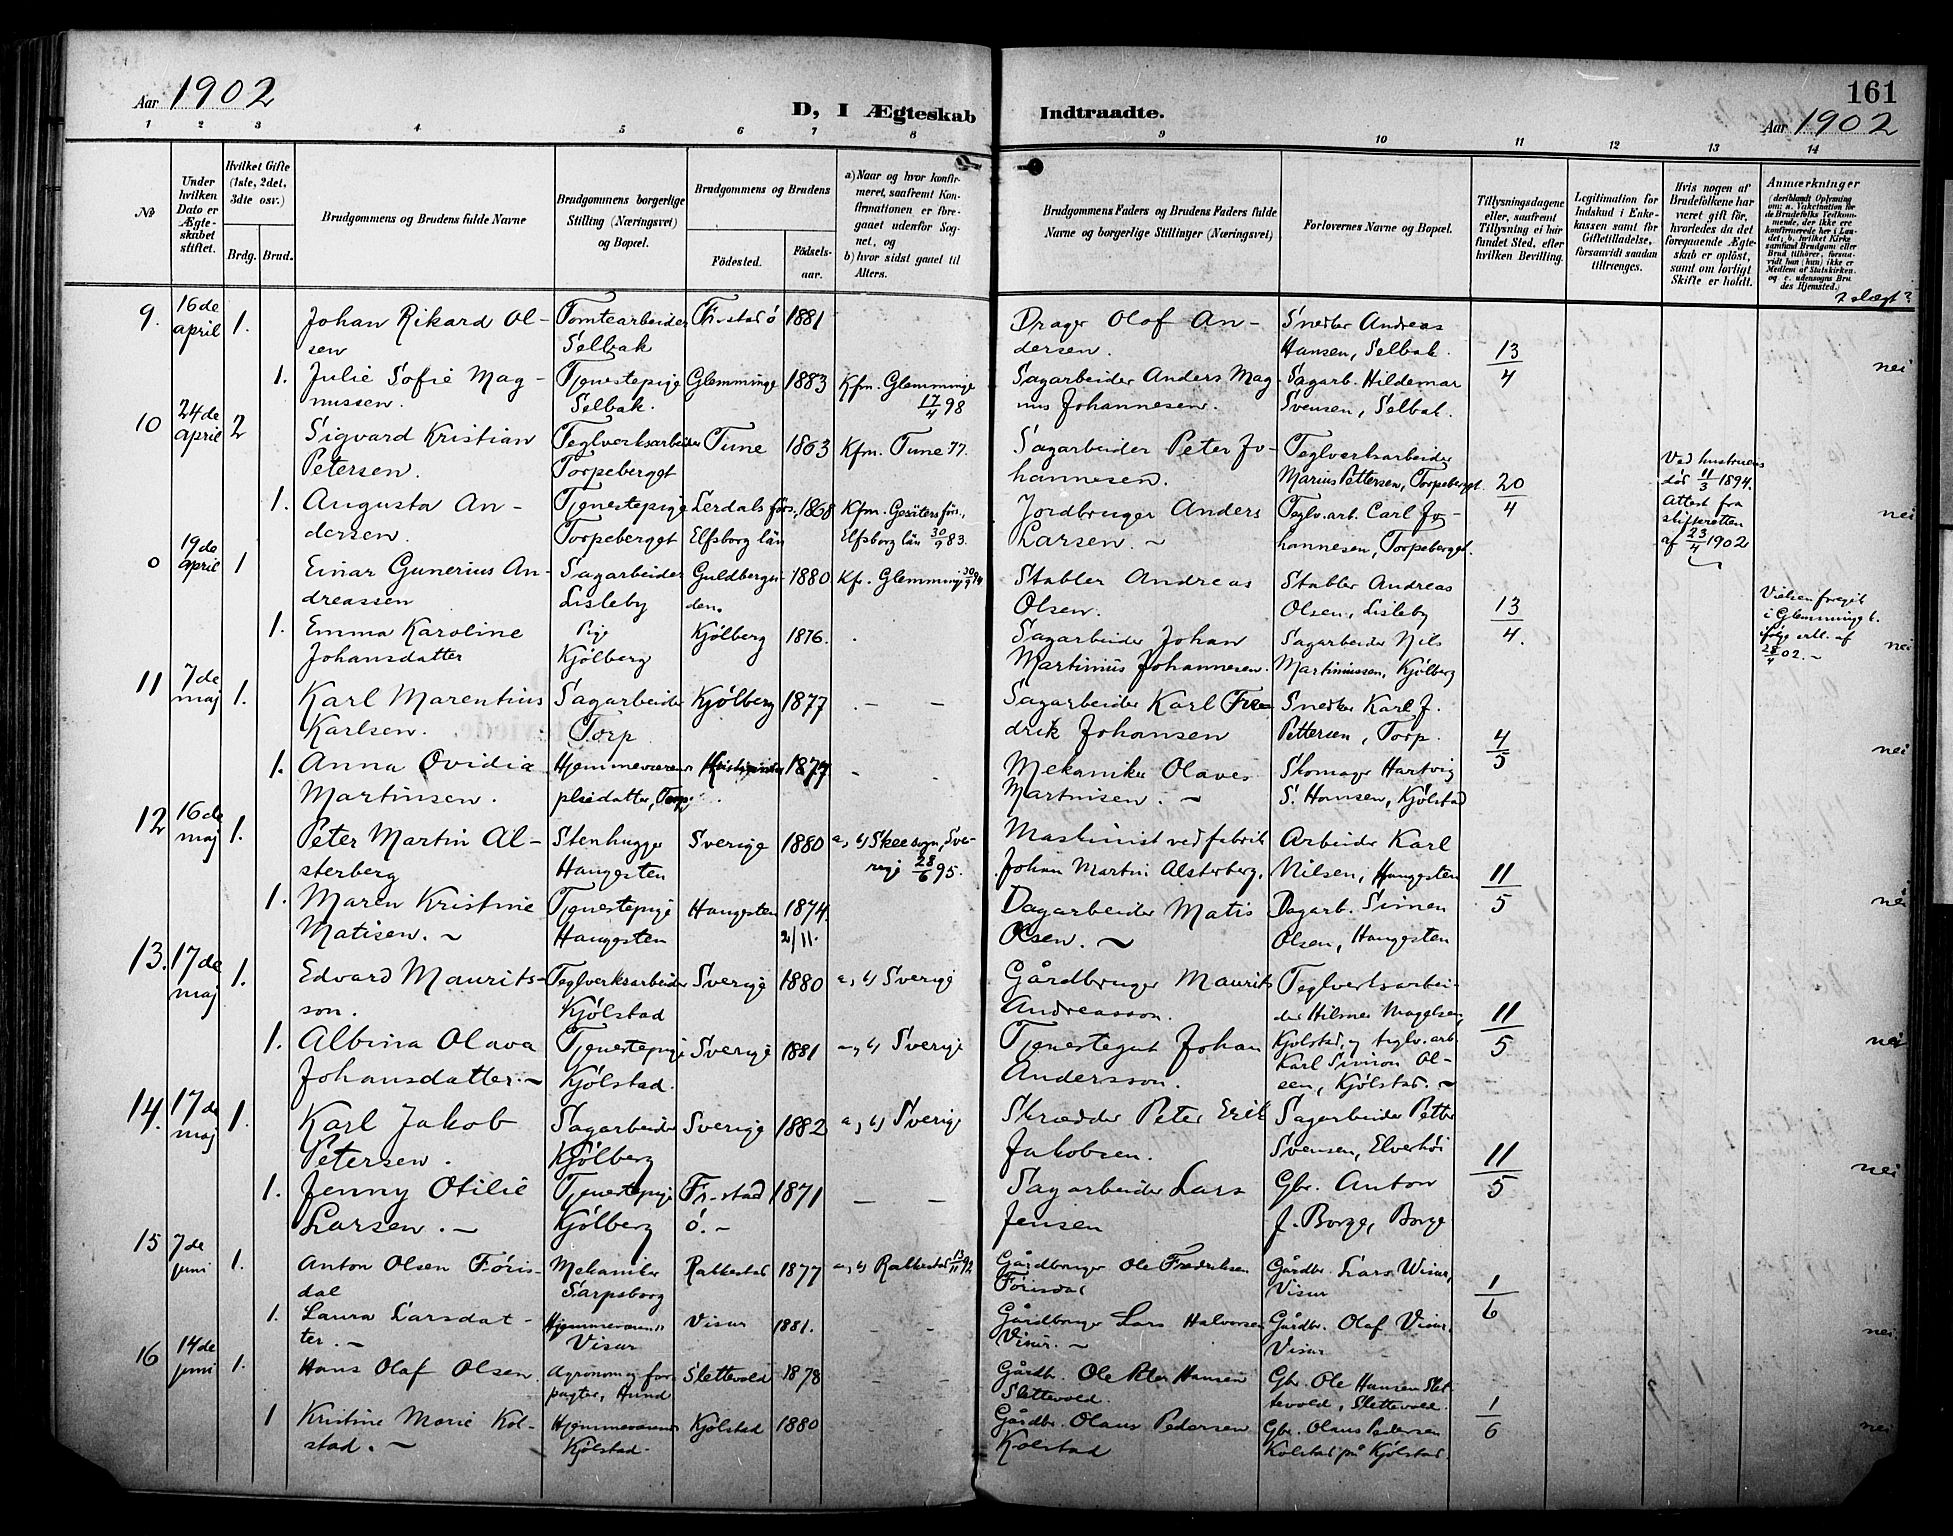 161
Aar 1902
D, I Ægteskab Indtraadte.
Aar 1902
1 2 3 4 5 6 7 8 9 10 11 12 13 14
№
Under hvilken Dato er Ægteskabet stiftet.
Hvilket Gifte (1ste, 2det, 3dte osv.)
Brdg. Brud.
Brudgommens og Brudens fulde Navne
Brudgommens borgerlige Stilling (Næringsvei) og Bopæl.
Brudgommens og Brudens
Fødested.
Fødselsaar.
a) Naar og hvor konfirmeret, saafremt Konfirmationen er foregaaet udenfor Sognet, og
b) hvor sidst gaaet til Alters.
Brudgommens Faders og Brudens Faders fulde Navne og borgerlige Stillinger (Næringsvei)
Forlovernes Navne og Bopæl.
Tillysningsdagene eller, saafremt Tillysning ei har fundet Sted, efter hvilken Bevilling.
Legitimation for Indskud i Enkekassen samt for Giftetilladelse, forsaavidt saadan tiltrænges.
Hvis nogen af Brudefolkene har været gift før, hvorledes da det foregaaende Ægteskab er opløst, samt om lovligt Skifte er holdt.
Anmærkninger
(deriblandt Oplysning om: a. Vakcination for de Brudefolks Vedkommende, der ikke ere konfirmerede her i Landet; b. hvilket Kirkesamfund Brudgom eller Brud tilhører, forsaavidt han (hun) ikke er Medlem af Statskirken, og c. udensogns Brudes Hjemsted.)
2 slægt?
9. 16de april 1. Johan Rikard Olsen Tomtearbeider Selbak Fr.stad ø 1881
Drager Olaf Andersen. Snedker Andreas Hansen, Selbak. 13/4
1. Julie Sofie Magnussen. Tjenestepige Selbak. Glemminge 1883 Kfm. Glemminge 17/4 98
Sagarbeider Anders Magnus Johannesen. Sagarb. Hildemar Svensen, Selbak. nei
10 24de april 2 Sigvard Kristian Petersen. Teglverksarbeider Torpeberget Tune 1863 Kfm. Tune 77.
Sagarbeider Peter Johannesen. Teglverksarbeider Marius Pettersen, Torpeberget. 20/4
Ved hustruens død 11/3 1894. Attest fra skifteretten af 23/4 1902
1. Augusta Andersen. Tjenestepige Torpeberget Lerdals førs., Elfsborg län 1868 Kfm. Gesäters førs., Elfsborg län 30/9 83.
Jordbruger Anders Larsen. ~ Teglv.arb. Carl Johannesen, Torpeberget. nei
0 19de april 1 Einar Gunerius Andreassen Sagarbeider Lisleby Guldbergsuden. 1880 Kf. Glemminge 30/9 94
Stabler Andreas Olsen. Stabler Andreas Olsen, Lisleby 13/4.
Vielsen foregik i Glemminge k. ifølge erkl. af 28/4 02. ~
1. Emma Karoline Johansdatter Pige Kjølberg Kjølberg 1876.
Sagarbeider Johan Martinius Johannesen. Sagarbeider Nils Martiniussen, Kjølberg nei
11 7de maj 1. Karl Marentius Karlsen. Sagarbeider Torp Kjølberg 1877 – –
Sagarbeider Karl Fredrik Johansen Snedker Karl J. Pettersen, Torp. 4/5
1. Anna Ovidia Martinsen. Hjemmeværende pleiedatter, Torp. 1877 – –
Mekaniker Olaves Martinisen. ~ Skomager Hartvig S. Hansen, Kjølstad nei
12 16de maj 1. Peter Martin Alsterberg Stenhugger Haugesten Sverige 1880 a, b) Skee sogn, Sverige 28/6 95.
Maskinist ved fabrik Johan Martin Alsterberg. Arbeider Karl Nilsen, Haugesten 11/5
1. Maren Kristine Matisen. ~ Tjenestepige Haugesten Haugesten 1874. 2/11.
Dagarbeider Matis Olsen. ~ Dagarb. Simen Olsen, Haugesten nei
13. 17de maj 1. Edvard Mauritsson. Teglverksarbeider Kjølstad Sverige 1880 a, b) Sverige
Gårdbruger Maurits Andreasson. Teglverksarbeider Hilmer Magelsen, Kjølstad, og teglv.arb. Karl Simon Olsen, Kjølstad. ~ 11/5
1. Albina Olava Johansdatter. ~ Tjenestepige Kjølstad. Sverige 1881 a, b) Sverige
Tjenestegut Johan Andersson. nei
14. 17de maj 1. Karl Jakob Petersen. Sagarbeider Kjølberg Sverige 1882 a, b) Sverige
Skrædder Peter Erik Jakobsen. Sagarbeider Petter Svensen, Elverhøi 11/5
1. Jenny Otilie Larsen. ~ Tjenestepige Kjølberg Fr.stad ø. ~ 1871 – –
Sagarbeider Lars Jensen Gbr. Anton J. Borge, Borge nei
15 7de juni 1. Anton Olsen Førisdal Mekaniker Sarpsborg Rakkestad 1877 a, b) Rakkestad 13/11 92
Gårdbruger Ole Fredriksen Førisdal Gårdbr. Lars Visur, Visur 1/6
1. Laura Larsdatter. ~ Hjemmeværende Visur Visur 1881. – –
Gårdbruger Lars Halvorsen Visur. ~ Gårdbr. Olaf Visur, Visur nei
16 14de juni 1. Hans Olaf Olsen. Agronom og forpagter, Hund Slettevold 1878 – –
Gårdbr. Ole Peter Hansen Slettevold. Gbr. Ole Hansen Slettevold, Slettevold. 1/6
1 Kristine Marie Kolstad. ~ Hjemmeværende Kjølstad. Kjølstad 1880 – –
Gårdbr. Olaus Pedersen Kolstad Gbr. Olaus Pedersen Kolstad på Kjølstad. nei